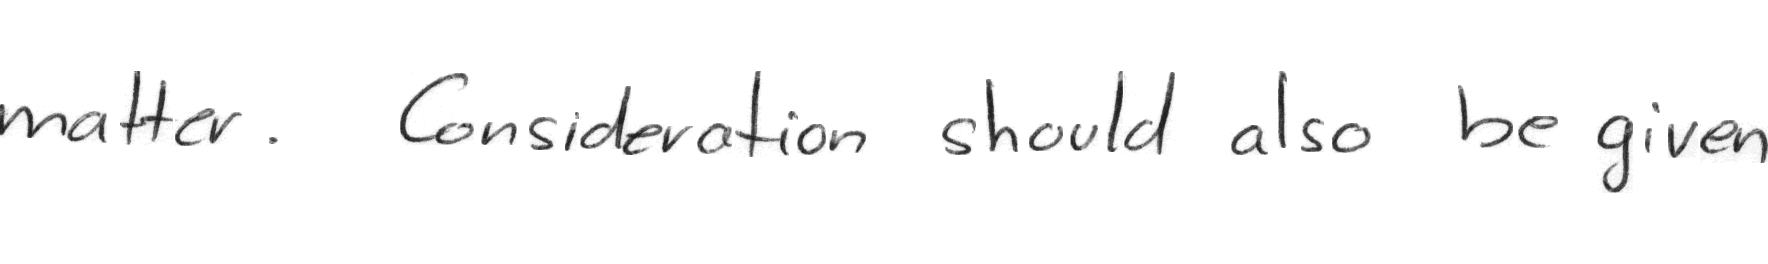 matter. Consideration should also be given